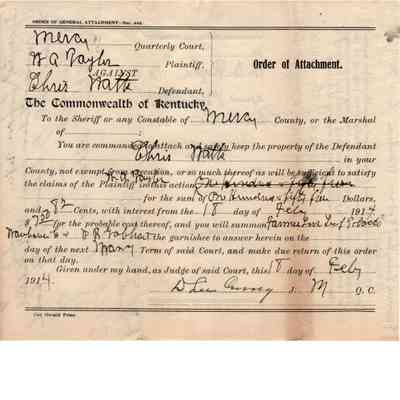 ORDER OF GENERAL ATTACHMENT
Mercer Quarterly Court,
Plaintiff,
AGAINST Order of Attachment.
Chris Watts
Defendant,
The Commonwealth of Kentucky,
To the Sheriff or any Constable of Mercer County, or the Marshal
of
You are commanded to attach and safely keep the property of the Defendant
Chris Watts
in your
County, not exempt from execution, or so much thereof as will be sufficient to satisfy
the claims of the Plaintiff in this action One hundred & fifty five
for the sum of One Hundred & fifty five Dollars,
and 82 Cents, with interest from the 18 day of Feby 1914
for the probable cost thereof, and you will summon
the garnishee to answer herein on the
day of the next Term of said Court, and make due return of this order
on that day.
Given under my hand, as Judge of said Court, this 18 day of Feby
1914.
J. M Q. C.